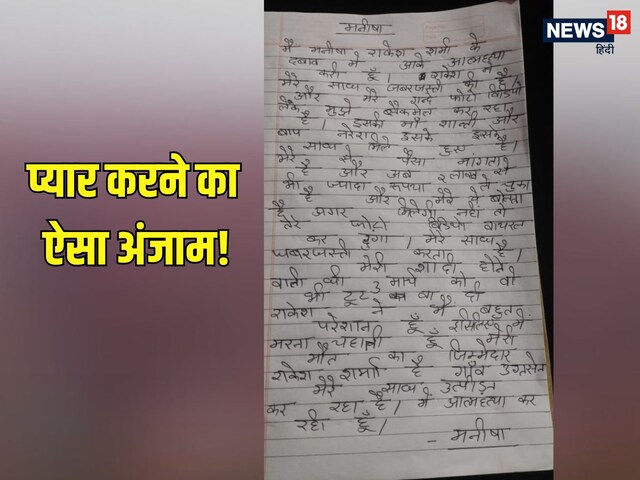 NEWS 18
हिंदी
प्यार करने का
ऐसा अंजाम!
मनीषा
मैं मनीषा राकेश शर्मा के
दबाव में आके आत्महत्या
करती हूँ। राकेश ने
मेरे साथ्य जबरजस्ती की है।
और मेरे गन्दे फोटो विडियो
लेके मुझे ब्लैकमेल कर रहा
है। इसकी माँ शान्ती और
बाप नरेश उसके इसके
साथ्य मिले हुए है।
मेरे से पैसा मांगता
है और अब 2 लाख से
भी ज्यादा रूपया ले चुका
है और मेरे से बोला
है अगर मिलेगी नही तो
तेरे फोटो विडियो वायरल
कर दुगा। मेरे साथ्य
जबरजस्ती करता है।
मेरी शादी होने
वाली थी 3 मार्च को वो
भी टूट वा दी
राकेश ने मैं बहुत
परेशान हूँ इसलिए में
मरना चहाती हूँ मेरी
मौत का जिम्मेदार
राकेश शर्मा है गाँव उग्रसेन
मेरे साथ्य उत्पीड़न
कर रहा है। में आत्महत्या कर
रही हूँ।
- मनीषा